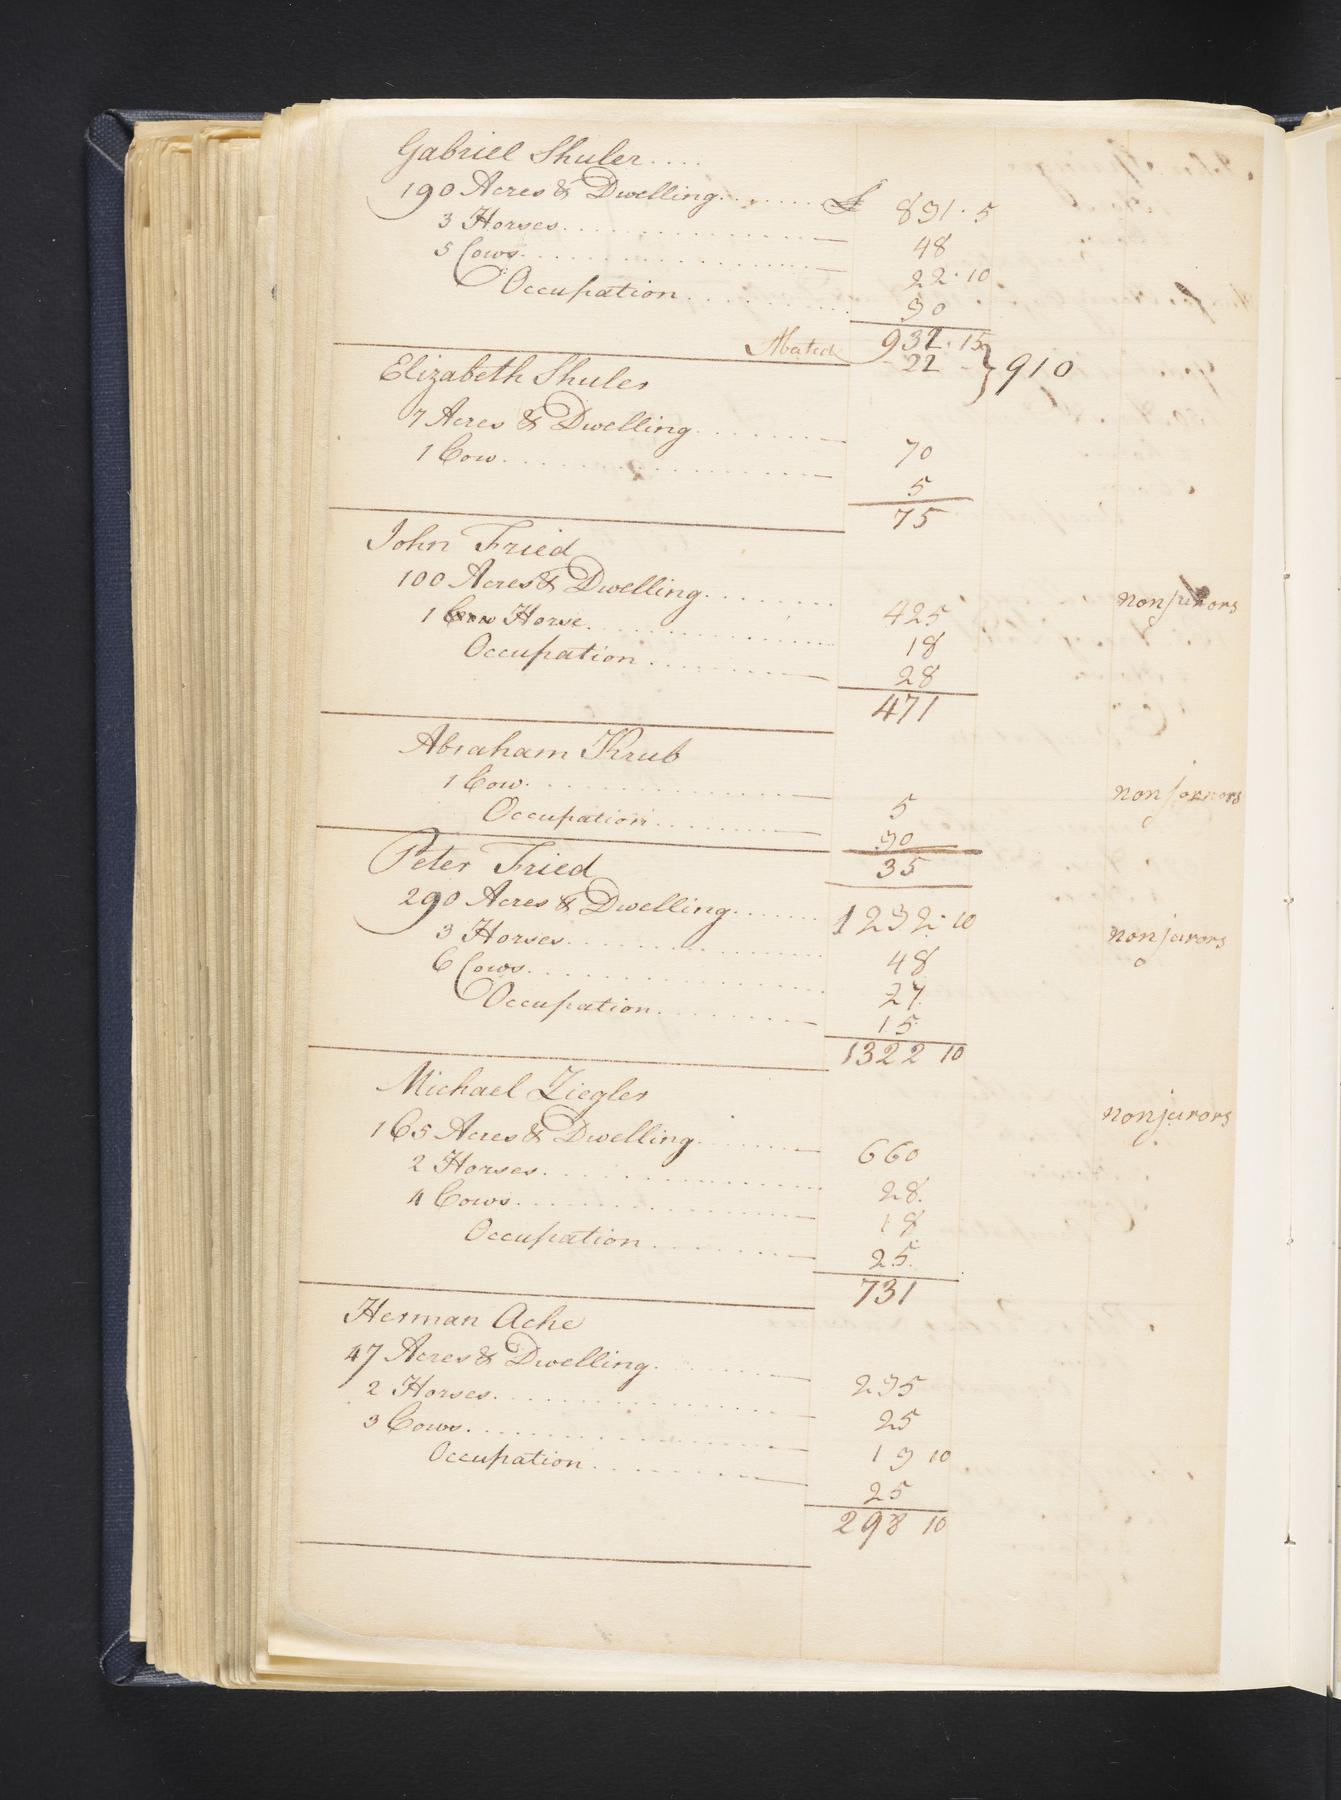 Gabriel Shuler....
190 Acres & Dwelling........ £ 831·5
3 Horses 48
5 Cows 22·10
Occupation 30
932·15
Abated 22 } 910
Elizabeth Shuler
7 Acres & Dwelling 70
1 Cow 5
75
John Fried
100 Acres & Dwelling 425 nonjurors
1 Cow Horse 18
Occupation 28
471
Abraham Krub
1 Cow 5 nonjorrors
Occupation 30
35
Peter Fried
290 Acres & Dwelling 1232·10
3 Horses 48 nonjurors
6 Cows 27
Occupation 15
1322 10
Michael Ziegler
165 Acres & Dwelling 660 nonjurors
2 Horses 28
4 Cows 18
Occupation 25
731
Herman Ache
47 Acres & Dwelling 235
2 Horses 25
3 Cows 13 10
Occupation 25
298 10